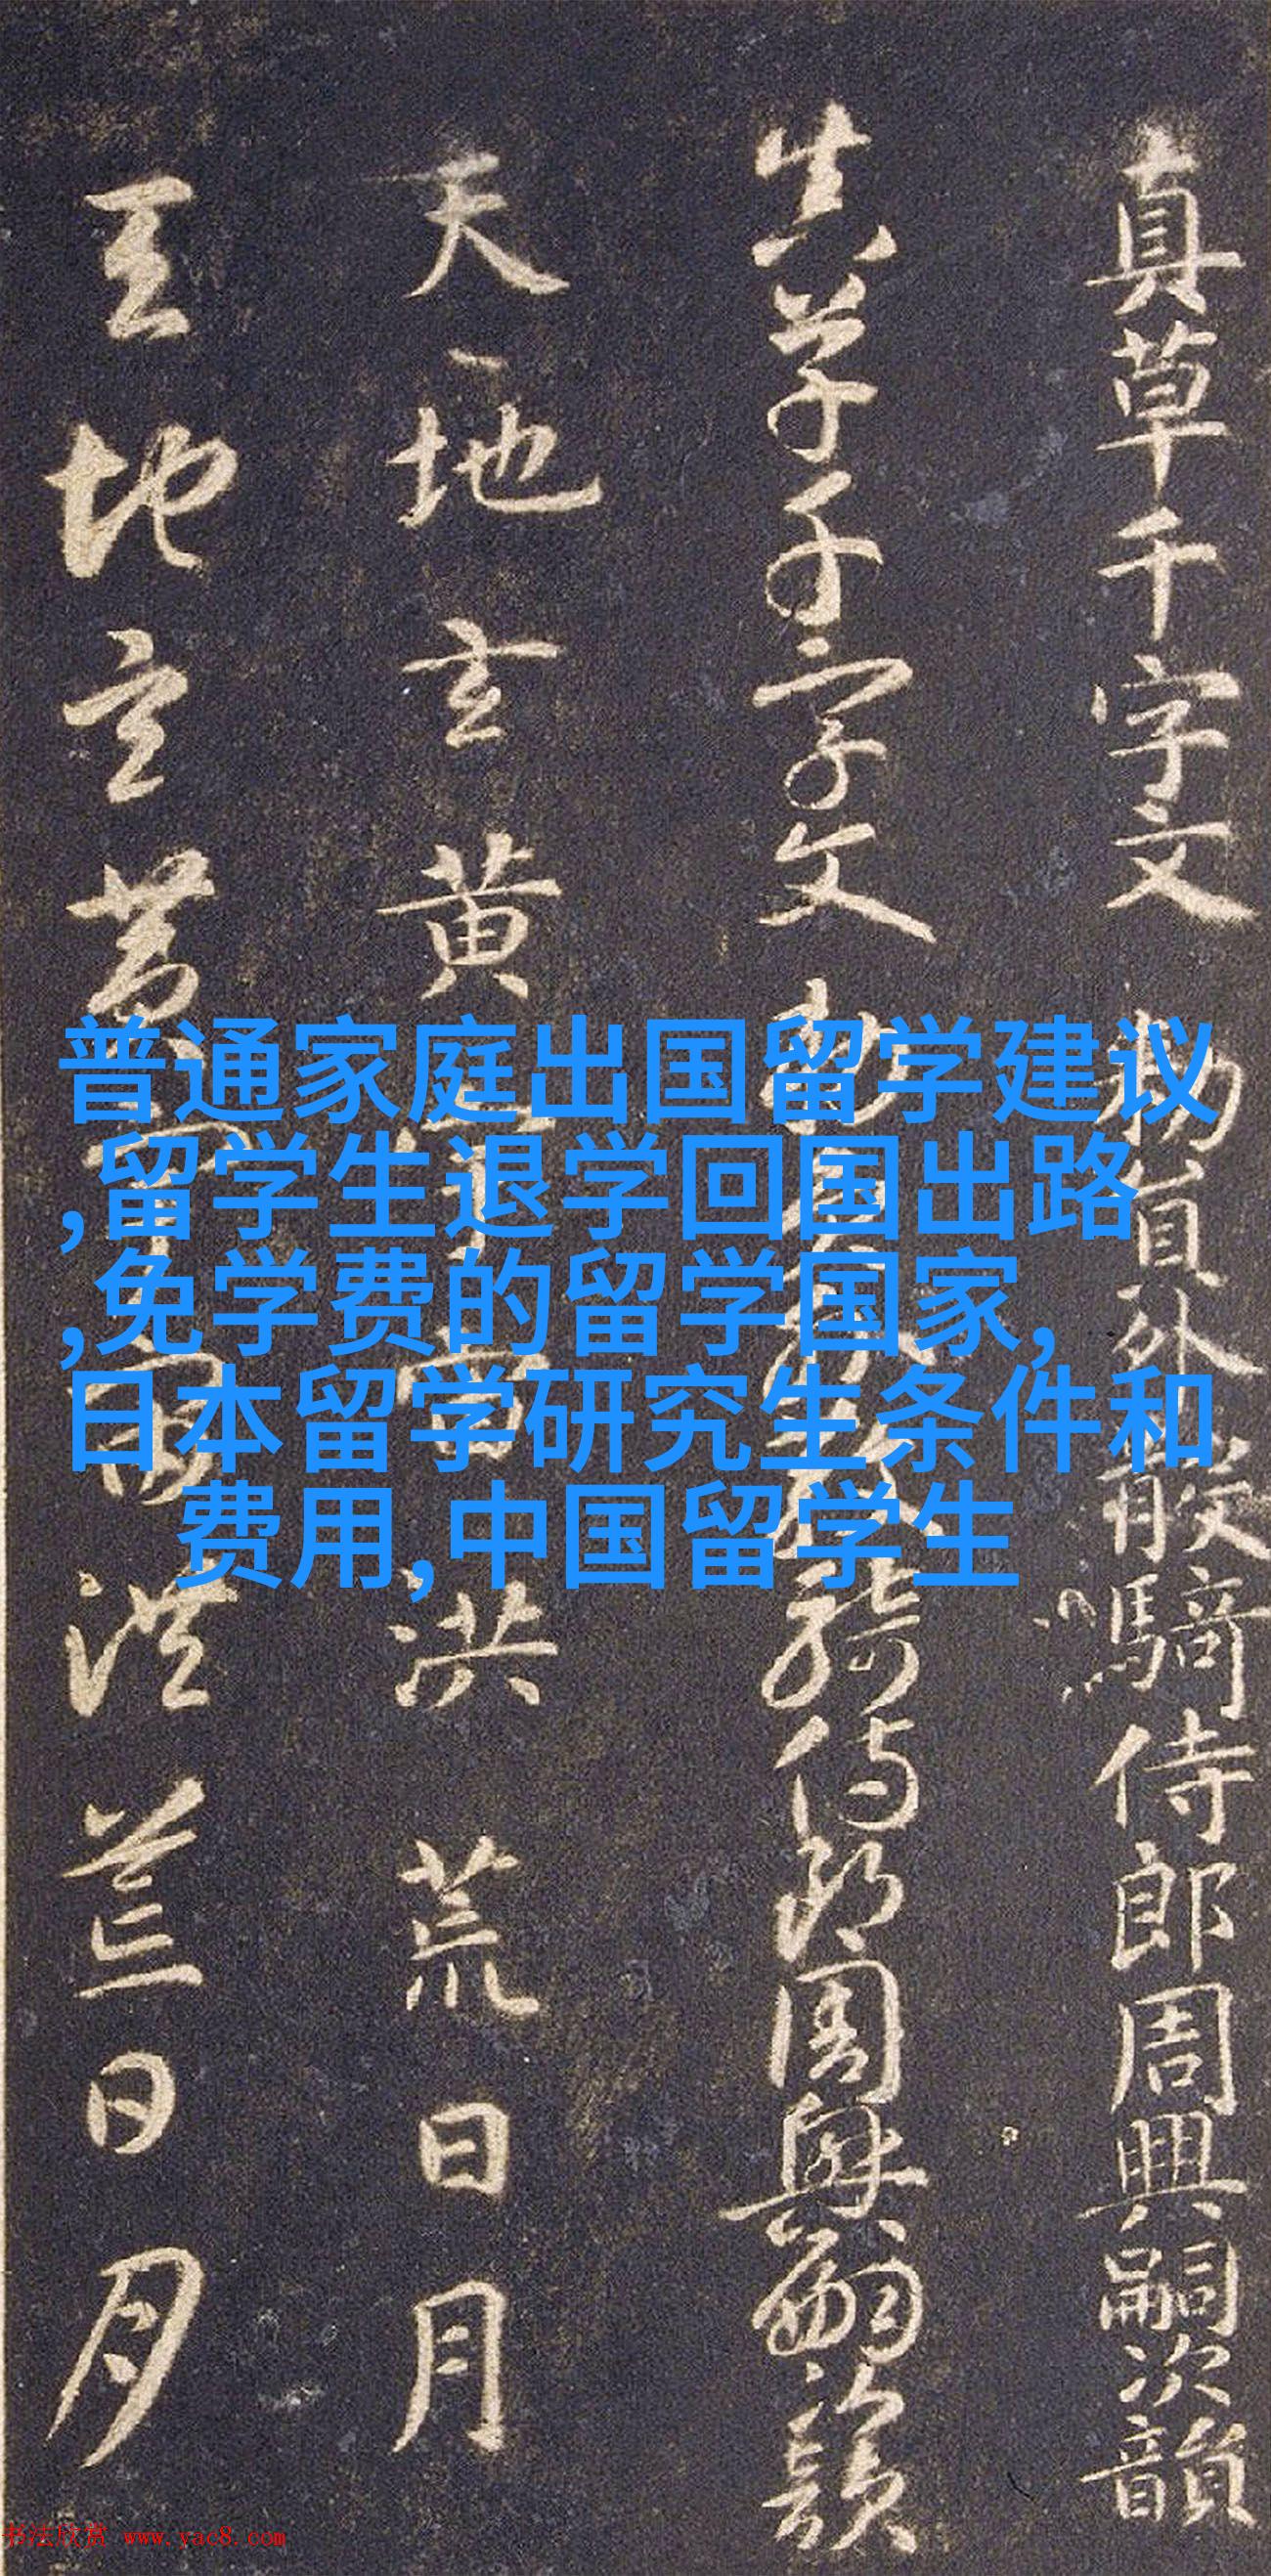 真草千字文 勑員外散騎侍郎周興嗣次韻
真草千字文 勑員外散騎侍郎周興嗣次韻
天地玄黄宇宙洪荒日月
天地玄黄宇宙洪荒日月
普通家庭出国留学建议
,留学生退学回国出路
,免学费的留学国家,
日本留学研究生条件和
费用,中国留学生
书法欣赏 www.yac8.com